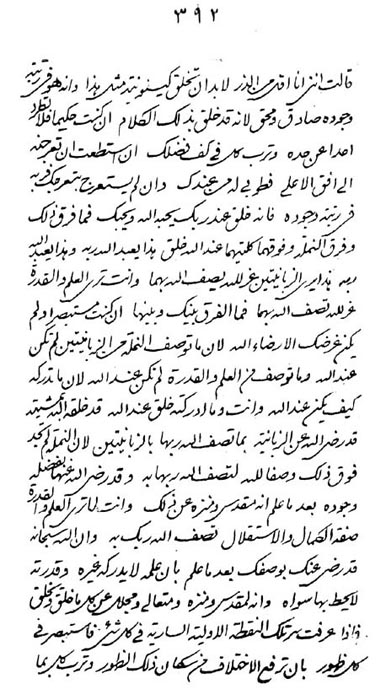 ٣٩٢
قالت اننى انا اقدم من الذر لابد ان تخلق كينونية مثلى هذا وانه هو فى رتبته
وجوده صادق ومحق لانه قد خلق بذلك الكلام ان كنت حكيما فلا تطرد
احدا عن حده وترب كل فى كف فضلك ان استطعت ان تعرجنه
الى افق الاعلى فطوبى له من عندك وان لم يستعرج بتعرجك فربه
فى رتبة وجوده فانه خلق عند ربك يحبه الله ويحبك فما فرق ذلك
وفرق النملة وفوقهما كلتيهما عند الله خلق هذا يعبد الله ربه وهذا يعبد الله
ربه هذا يرى الزبانيتين عز لله يصف الله بهما وانت ترى العلم والقدرة
عز لله تصف الله بهما فما الفرق بينك وبينها ان كنت مستبصرا ولم
يكن غرضك الا رضاء الله لان ما توصف النملة من الزبانيتين لم تكن
عند الله وما توصف من العلم والقدرة لم تكن عند الله لان ما تدركه
كيف يكن عند الله وانت وما ادركته خلق عند الله قد خلقه الله بمشيته
قد رضى الله عن الزبانية بما تصف الله ربها بالزبانيتين لان النملة لم تجد
فوق ذلك وصفا لله لتصف الله ربها به وقد رضى الله عنها بفضله
وجوده بعد ما علم انه مقدس ومنزه عن ذلك وانت لما ترى العلم والقدرة
صفة الكمال والاستقلال تصف الله ربك به وان الله سبحانه
قد رضى عنك بوصفك بعد ما علم بان علمه لا يدركه غيره وقدرته
لا يحيط بها سواه وانه لمقدس ومنزه ومتعالى ومجلل عن كل ما خلق ويخلق
فاذا عرفت سر تلك النقطة الاولية السارية فى كل شئ فاستبصر فى
كل ظهور بان ترفع الاختلاف من سكان ذلك الظهور وترب كل بما